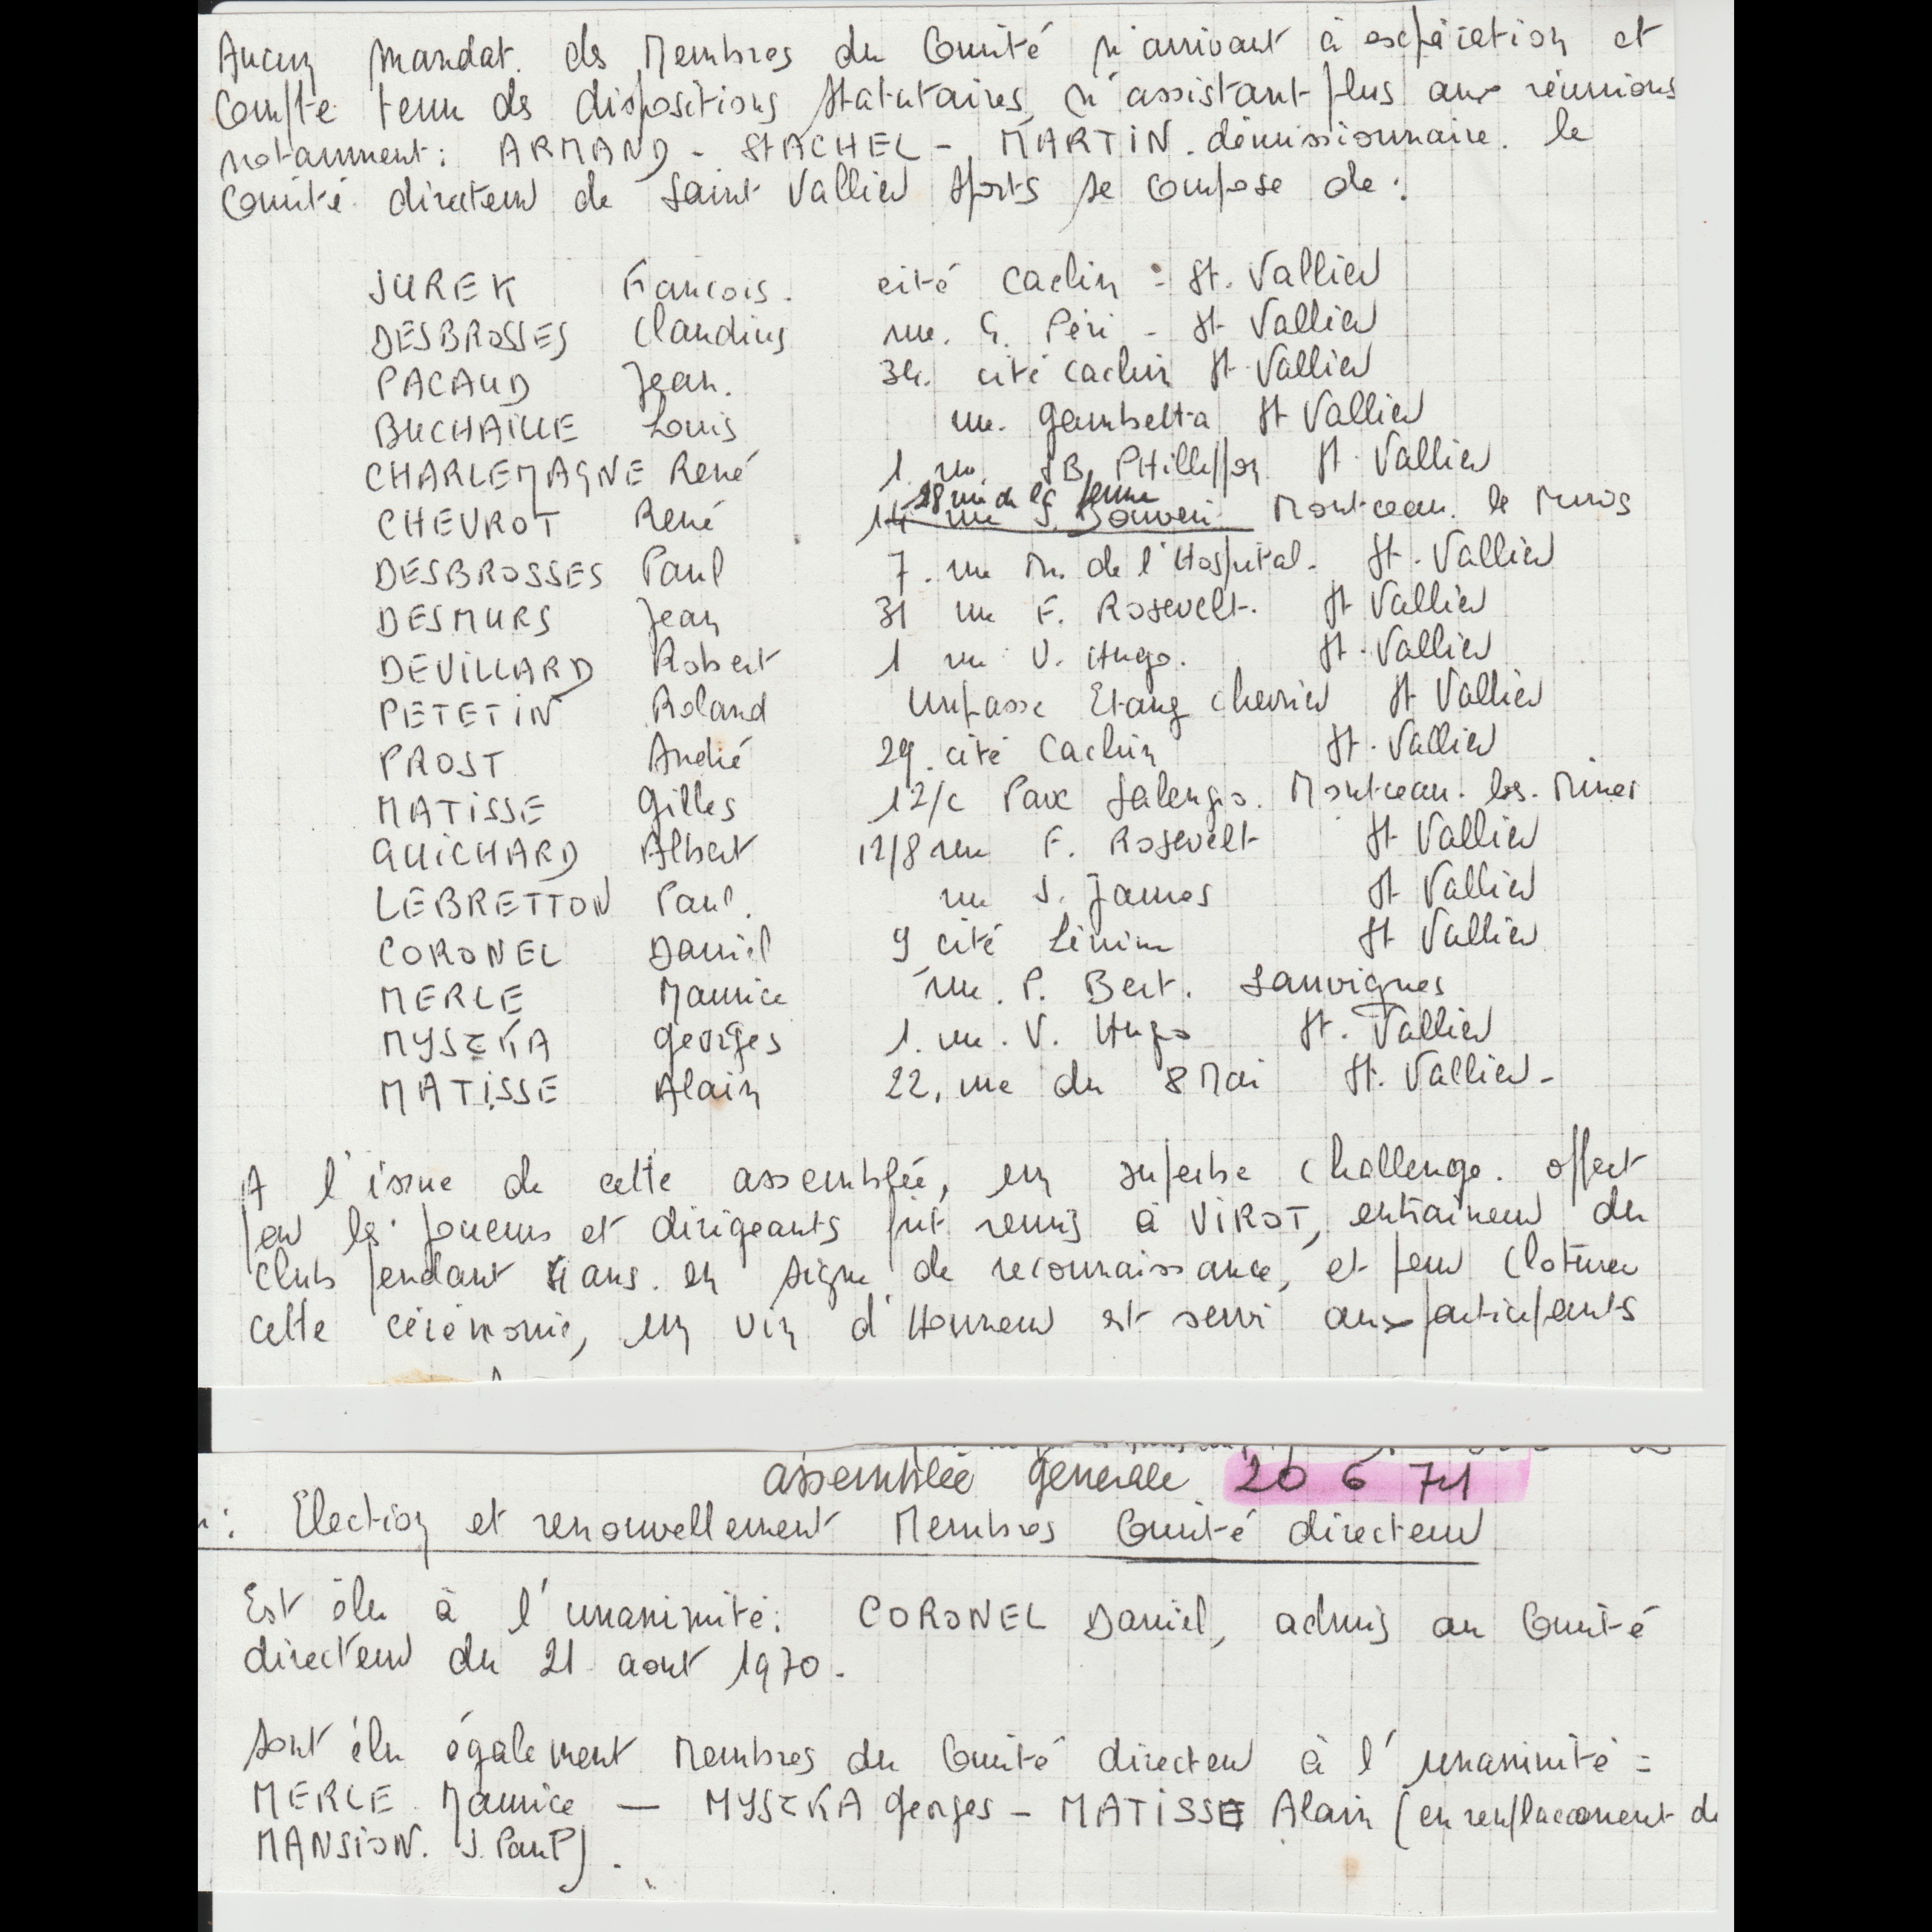 Aucun mandat des Membres du Comité n'arrivant à expiration et
Compte tenu des dispositions statutaires, n'assistant plus aux réunions
notamment : ARMAND - STACHEL - MARTIN. démissionnaire. le
Comité directeur de Saint Vallier Sports se compose de :
JUREK Francois. cité Cachin - St. Vallier
DESBROSSES Claudius rue. G. Péri - St Vallier
PACAUD Jean. 34. cité Cachin St Vallier
BUCHAILLE Louis rue. Gambetta St Vallier
CHARLEMAGNE René 1. rue. JB. St Vallier
28 rue de la ferme
CHEVROT René 14 rue J. Bouveri Montceau. le Mines
DESBROSSES Paul 7. rue M. de l'Hospital. St. Vallier
DESMURS Jean 31 rue F. Rosevelt. St Vallier
DEVILLARD Robert 1 rue V. Hugo. St. Vallier
PETETIN Roland impasse Etang chevrier St Vallier
PROST André 29. cité Cachin St. Vallier
MATISSE Gilles 12/c Parc Salengro. Montceau. les. Mines
GUICHARD Albert 12/8 rue F. Rosevelt St Vallier
LEBRETTON Paul. rue J. Jaures St Vallier
CORONEL Daniel 9 cité Lénine St Vallier
MERLE Maurice rue. P. Bert. Sanvignes
MYSZKA Georges 1. rue. V. Hugo St. Vallier
MATISSE Alain 22, rue du 8 Mai St. Vallier -
A l'issue de cette assemblée, un superbe challenge. offert
par les joueurs et dirigeants fut remis à VIROT, entraineur du
club pendant 4 ans. en signe de reconnaissance, et pour cloturer
cette cérémonie, un vin d'Honneur est servi aux participants
assemblée générale 20 6 71
: Election et renouvellement Membres Comité directeur
Est élu à l'unanimité : CORONEL Daniel, admis au Comité
directeur du 21 aout 1970.
Sont élu également Membres du Comité directeur à l'unanimité =
MERLE Maurice — MYSZKA Georges - MATISSE Alain (en remplacement de
MANSION. J. Paul).